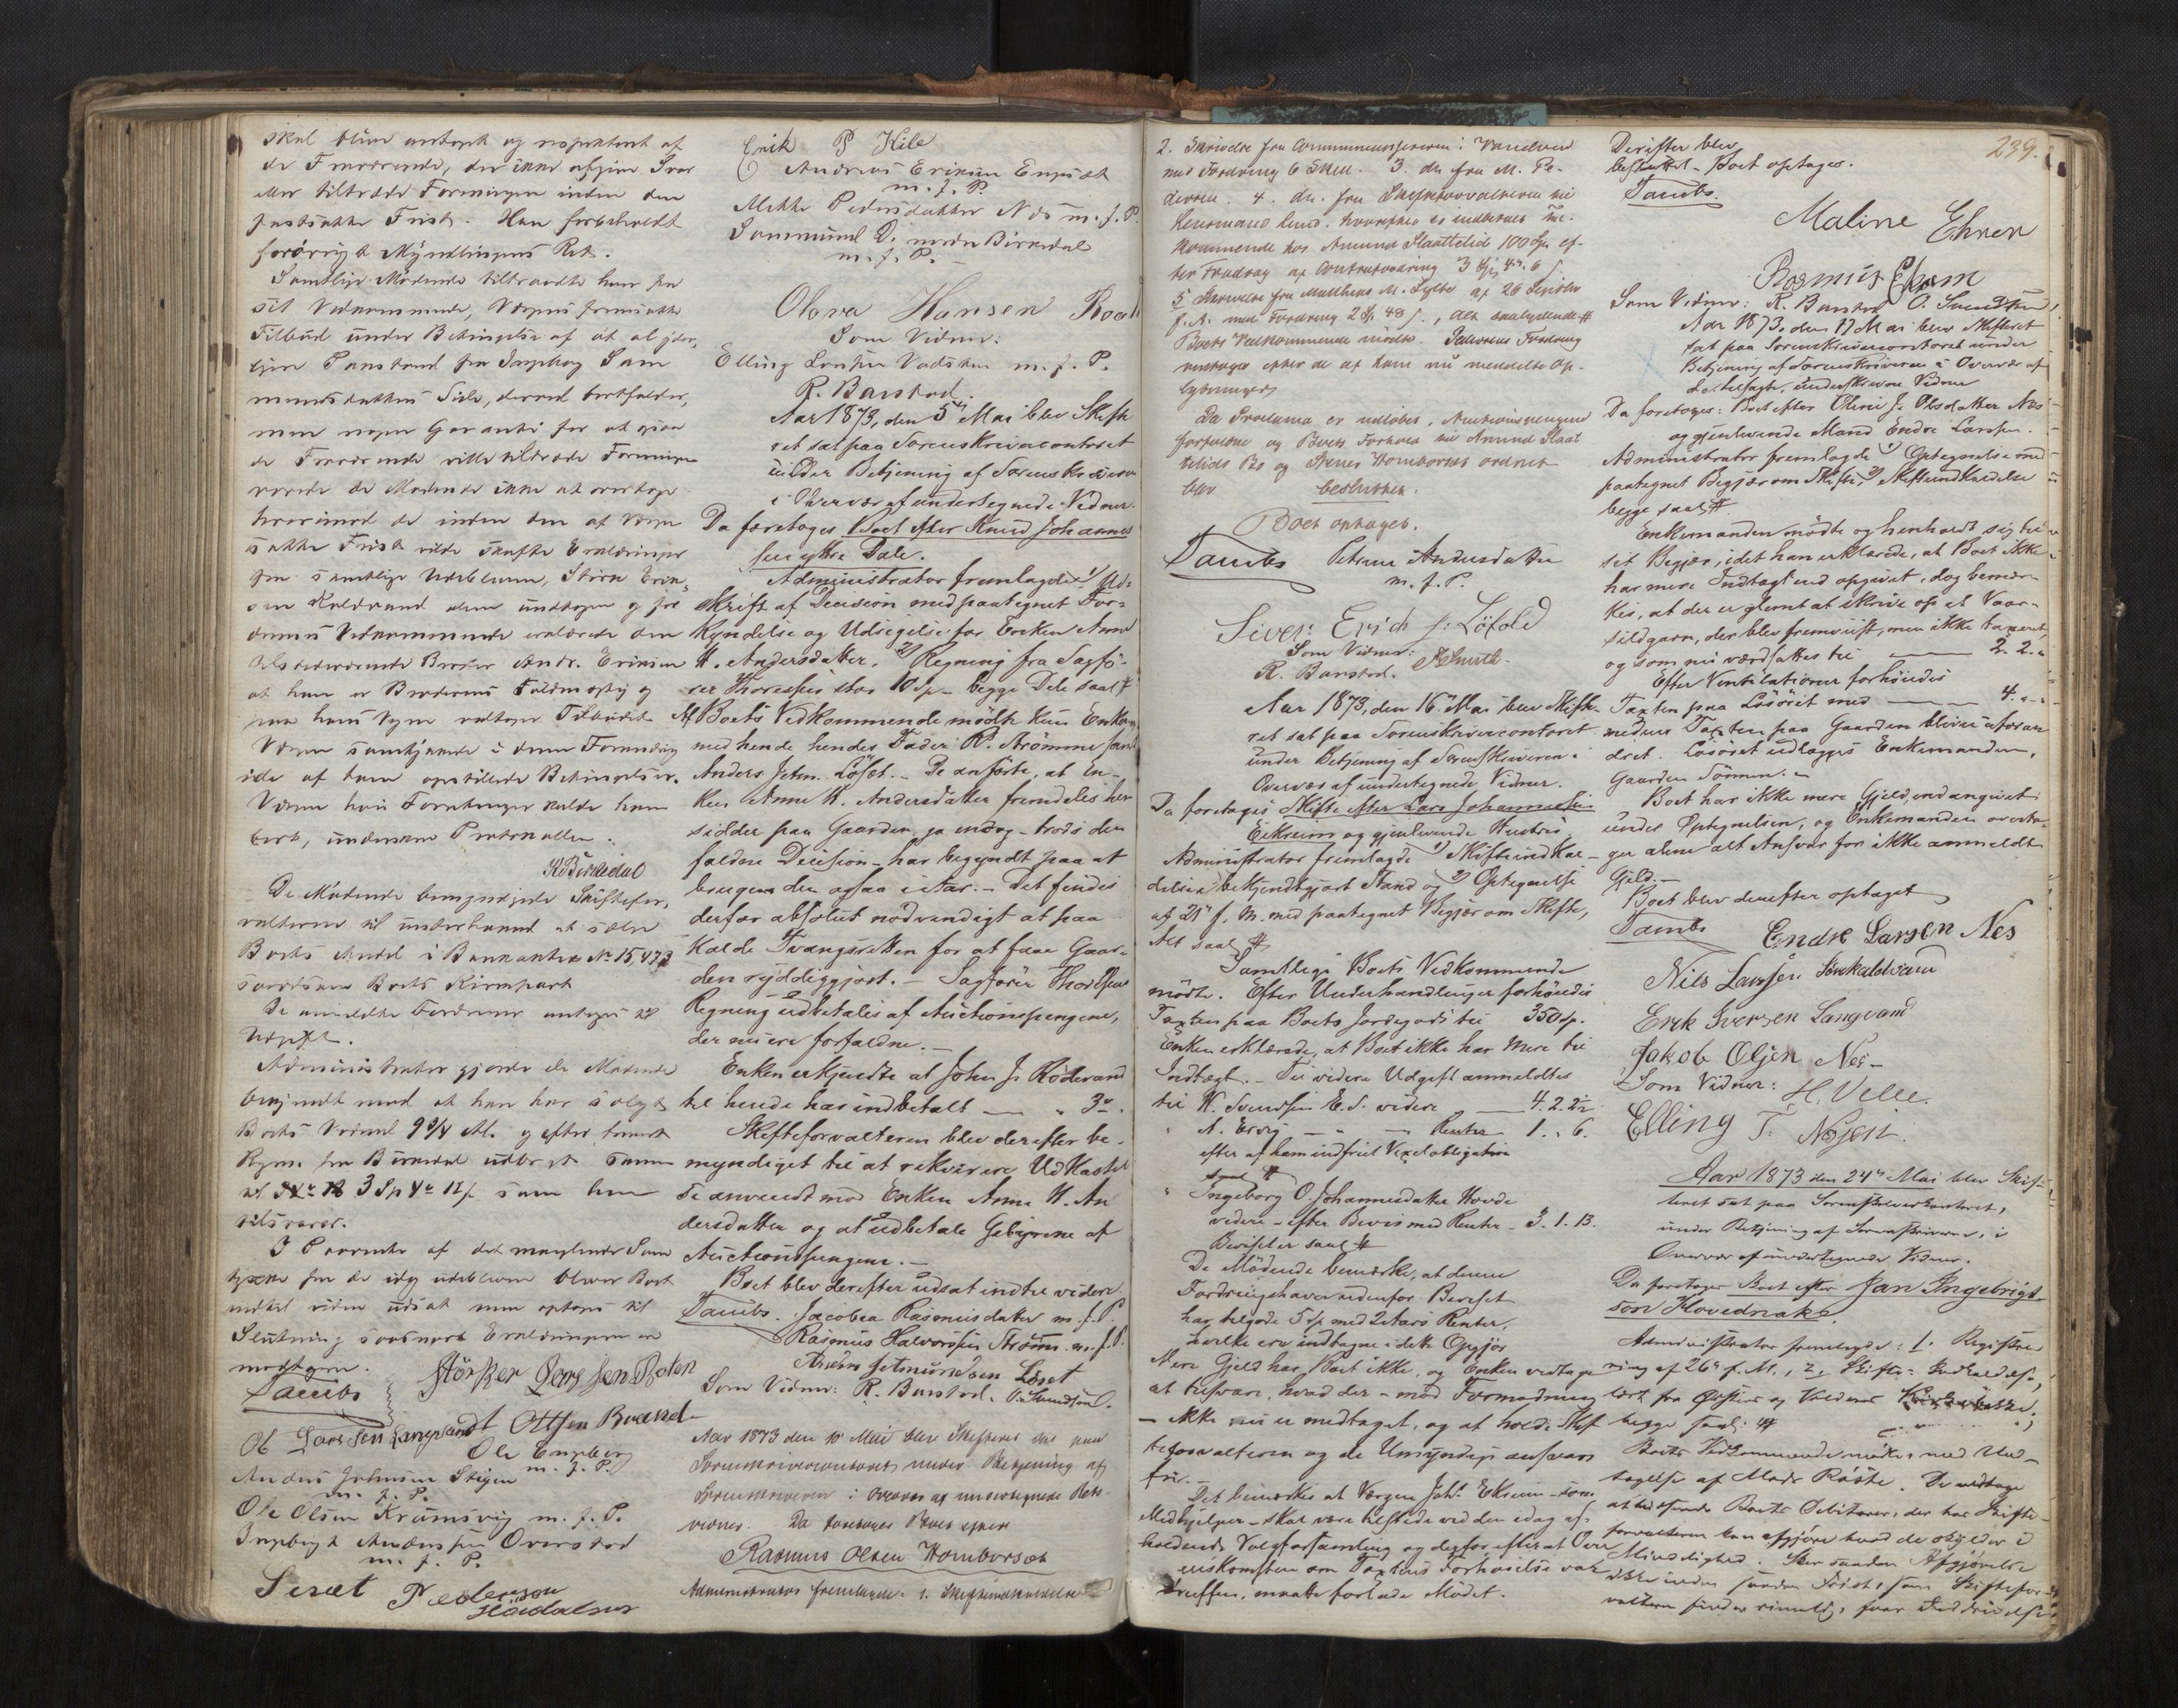 skal blive antaget og respekteret af
de Fraværende, der ikke afgive Svar
eller tiltræde Foreningen inden den
fastsatte Frist. Han forbeholdt
forøvrigt Myndlingens Ret.
Samtlige Mødende tiltraadte hver for
sit Vedkommende, Værgens fremsatte
Tilbud under Betingelse af at al
Paastand fra Ingeborg Sam
mensdatters Side, derved bortfalder,
men nogen Garanti for at
de Fraværende ville tiltræde Foreningen
de Mødende ikke at overtage
hvorimod de inden den af Værgen
satte Frist vilde skaffe Erklæringer
fra samtlige Udeblevne,
Vedkommende erklærede den
tilstedeværende Broder Andr. Eriksen
at han er Broderens Fuldmægtig og
paa hans Vegne vedtager Tilbudet
Værgen samtykkede i denne Forandring
af ham opstillede Betingelser.
Værgen hvis Forretninger kaldte ham
bort, underskrev Protokollen.
K Birkedal
De Mødende bemyndigede Skiftefor,
valteren til underhaand at sælge
Boets Andel i Bankaktie No 15,473
saavelsom Boets Kirkepart
De anmeldte Fordringer antages til
Udgift.
Administrator gjorde de Mødende
bekjendt med at han har solgt
Boets Vadmel 9 3/4 Al. og efter
Regn. fra Birkedal udbragt samme
til 3 Sp 4 12 s. som han
tilsvarer.
I Paavente af det manglende Sam
tykke fra de idag udeblevne blev Boet
indtil videre udsat men optages til
Slutning saasnart Erklæringerne er
modtagne.
Jambs
Ol Larssen Langvandt Ottsen Brand
Ole Engeberg
m. f. P.
Andreas Johnsen Stegen
m. f. P.
Ole Olsen Krumsvig m. f. P.
Ingebrigt Andersen Overstad
m. f. P.
Sevat Pedersson
Erik P Kile
Andreas Eriksen Engeset
m. f. P.
Mette Pedersdatter Nes m. f. P.
Sammund D. nedre Birkedal
m. f. P.
Olava Hansen
Som Vidner:
Elling Vadsten m. f. P.
R. Barstad.
Aar 1873, den 5te Mai blev Skifte
ret sat paa Sorenskrivercontoret
under Betjening af Sorenskriveren
i Overvær af undertegnede Vidner.
Da foretages Boet efter Knud Johannes
sen yttre Dale.
Administrator fremlagde 1) Ud-
skrift af Decision med paategnet For-
kyndelse og Udsigelse for Enken Anne
K. Andersdatter, 2) Regning fra Sagfø-
rer Thoresen stor 10 Sp - begge Dele saal #
Af Boets Vedkommende mødte kun Enken,
med hende hendes Fader R. Strømme samt
Anders Jetm. Løset. - De anførte, at En-
ken Anne K. Andersdatter fremdeles her
sidder paa Gaarden, ja endog - trods den
faldne Decision - har begyndt paa at
bruge den ogsaa iAar. - Det findes
derfor absolut nødvendigt at paa
kalde Tvangsretten for at faae Gaar-
den ryddiggjort. - Sagfører Thoresens
Regning udbetales af Auctionspengene,
der nu ere forfaldne. -
Enken erkjendte at John J. Rødevand
til hende har indbetalt - " 3 ".
Skifteforvalteren blev derefter be-
myndiget til at rekvirere Udkastel
se anvendt mod Enken Anne K. An
dersdatter og at udbetale Gebyrene af
Auctionspengene. -
Boet blev derefter udsat indtil videre
Jambs. Jacobea Rasmusdatter m. f. P.
Rasmus Halvorsen Strøm. m. f. P.
Anders Jetmundsen Løset
Som Vidner: R. Barstad. O. Smedsen.
Aar 1873 den 10 Mai blev Skifteret sat paa
Sorenskrivercontoret under Betjening af
Sorenskriveren i Overvær af undertegnede Rets-
vidner. Da foretages Boet efter
Rasmus Olsen Homborset
Administrator fremlagde: 1. Skifteindkaldelse
2. Skrivelse fra Communekassereren i Vanelven
med Fordring 6 Skill. 3. do fra M. Pe-
dersen. 4. do. fra Skifteforvalteren til
Lensmand Lund, hvorefter er indbetalt til-
kommende hos Amund Slaattelid 100 Sp. ef-
ter Fradrag af Contrafordring 3 Sp 4 " 6 s.
5 Skrivelse fra Mathias M. Sylte af 26
f. A. med Fordring 2 Sp. 48 s., Alt saalydende #
Boets Vedkommende mødte. Pedersens Fordring
vedtages efter de af ham nu meddelte Op-
lysninger
Da Proclama er udløbet, Auctionspengene
forfaldne og Boets Forhold til Amund Slaat
telids Bo og Homborset ordnet
blev besluttet.
Boet optages.
Jambs Petrine Andersdatter
m. f. P.
Siver Erich s: Löfold
Som Vidner:
R. Barstad. Smith.
Aar 1873, den 16. Mai blev Skifte-
ret sat paa Sorenskrivercontoret
under Betjening af Sorenskriveren i
Overvær af undertegnede Vidner.
Da foretages Skifte efter Lars Johannessen
Eikrem og gjenlevende Hustru.
Administrator fremlagde 1) Skifteindkal-
delsen i bekjendtgjort Stand og 2) Optegnelse
af 21" f. M. med paategnet Begjær om Skifte,
Alt saal #
Samtlige Boets Vedkommende
mødte. Efter Underhandlinger forhøiedes
Taxten paa Boets Jordegods til 350 Sp.
Enken erklærede, at Boet ikke har mere til
Indtægt. - Til videre Udgift anmeldtes
til K. Svendsen E. S. videre - 4. 2. 2½
" A. Ervig - " - Renter 1. " 6.
efter af ham indfriet Vexelobligation
saal #
" Ingeborg O. Johannesdatter Hovde
videre - efter Bevis med Renter - 3. 1. 13.
Beviset er saal #
De Mødende bemærke, at denne
Fordringshaver udenfor Beviset
har tilgode 5 Sp med 2 Aars Renter,
hvilke ere indtagne i dette Opgjør
Mere Gjeld har Boet ikke, og Enken vedtager
at tilsvare, hvad der - mod Formodning
- ikke nu er medtaget, og at holde Skif
teforvalteren og de Umyndige ansvars
fri.
Det bemærkes at Værgen Johs Ekrem - som
Medhjelper - skal være tilstede ved den idag af-
holdende Valgforsamling og derfor efterat Over
eenskomsten om Taxtens Forhøielse var
truffen, maatte forlade Mødet.
239.
Derefter blev
besluttet - Boet optages.
Jambs.
Maline Ehren
Rasmus Eham
Som Vidner: R. Barstad O. Smedsen,
Aar 1873, den 17 Mai blev Skifteret
sat paa Sorenskrivercontoret under
Betjening af Sorenskriveren i Overvær af
de tilsagte, underskrevne Vidner
Da foretoges: Boet efter Oline J. Olsdatter Nes
og gjenlevende Mand Endre Larssen.
Administrator fremlagde 1) Optegnelse med
paategnet Begjær om Skifte, 2) Skifteindkaldelse
begge saal #
Enkemanden mødte og henholdt sig til
sit Begjær, idet han erklærede, at Boet ikke
har mere Indtægt end opgivet, dog bemær-
kes, at der er glemt at skrive op et Vaar-
sildgarn, der blev fremviist, men ikke taxeret,
og som nu værdsattes til - 2. 2. "
Efter Ventilationer forhøiedes
Taxten paa Løsøret med - 4. " "
medens Taxten paa Gaarden bliver uforan
dret. Løsøret udlægges Enkemanden,
Gaarden Sønnen. -
Boet har ikke mere Gjeld, end angivet
under Optegnelsen, og Enkemanden overta-
ger alene alt Ansvar for ikke anmeldt
Gjeld. -
Boet blev derefter optaget
Jambs Endre Larsen Nes
Nils Larssen
Erik Iversen Langvand
Jakob Olsen Nes -
Som Vidner: H. Velle.
Elling T. Nøsen.
Aar 1873 den 24de Mai blev Skif-
teret sat paa Sorenskrivercontoret,
under Betjening af Sorenskriveren, i
Overvær af undertegnede Vidner.
Da foretages Boet efter Jan Ingebrigt-
son Hovednake.
Administrator fremlagde: 1. Registre-
ring af 26de f. M., 2, Skifte-Indkaldelse,
læst fra Ørstens og Voldens
begge saal: #
Boets Vedkommende mødte, med Und-
tagelse af Mads Røste. De vedtage
at Boets Debitorer, der har Skifte-
forvalteren kan afgjøre hvad de skylder i
Mindelighed. Sker saadan Afgjørelse
ikke inden saadan Frist, som Skiftefor-
valteren finder rimelig, faar Inddrivelse